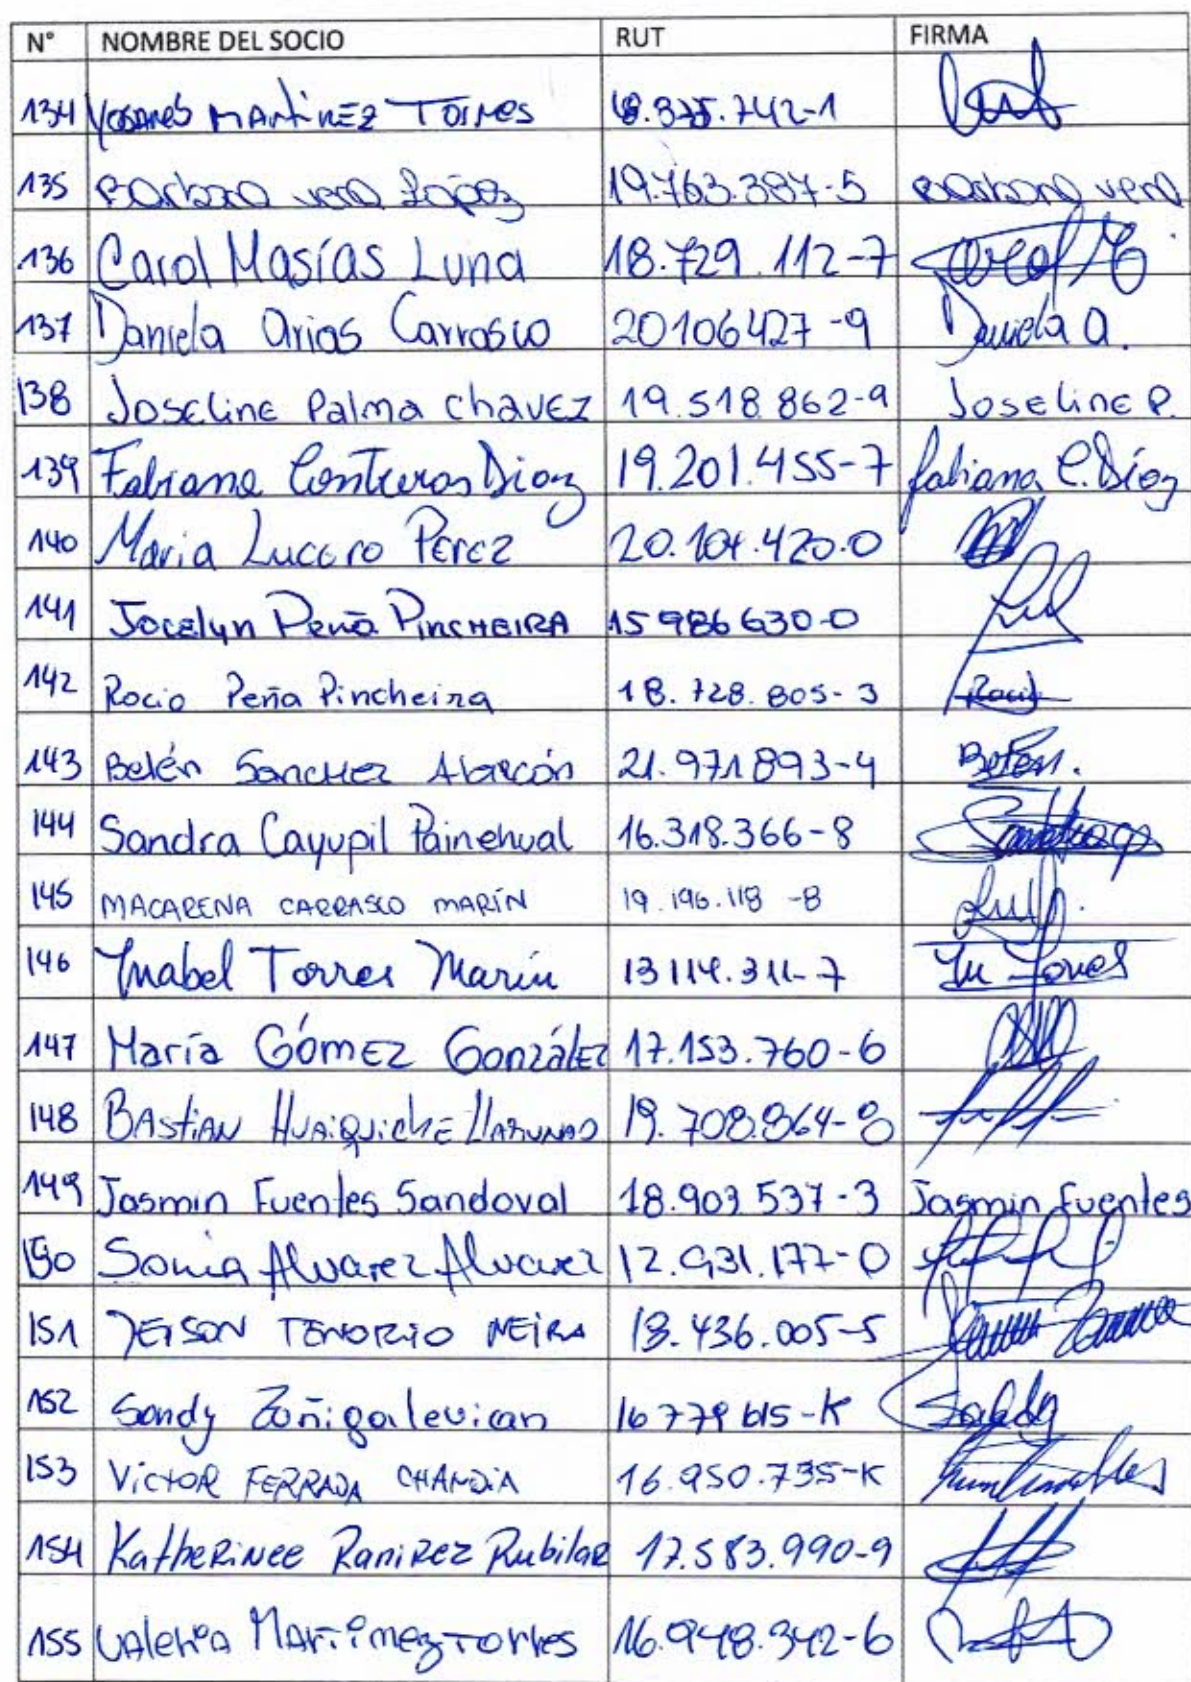 N° NOMBRE DEL SOCIO RUT FIRMA
134 MARTINEZ TORRES
135 Barbara vera López 19.763.387-5 Barbara vera
136 Carol Masías Luna 18.729.112-7 Carol M
137 Daniela Arias Carrasco 20106427-9 Daniela A.
138 Joseline Palma chavez 19.518.862-9 Joseline P.
139 Fabiana Contreras Díaz 19.201.455-7 fabiana C. Díaz
140 Maria Lucero Perez 20.104.420.0
141 Jocelyn Peña PINCHEIRA 15986630-0
142 Rocio Peña Pincheira 18.728.805-3 Rocio
143 Belén SANCHEZ Alarcón 21.971893-4 Belén.
144 Sandra Cayupil Painehual 16.318.366-8
145 MACARENA CARRASCO MARÍN 19.196.118-8
146 Ynabel Torres Marin 13114.311-7 Torres
147 María GÓMEZ González 17.153.760-6
148 BAStiAN 19.708.864-8
149 Jasmin Fuentes Sandoval 18.903537-3 Jasmin Fuentes
150 Sonia Alvarez Alvarez 12.931.177-0
151 JEISON TENORIO NEIRA 18.436.005-5
152 Sandy Zuñiga levican 16779615-K Sandy
153 VICTOR FERRADA CHANDIA 16.950.735-K
154 Katherinee Ramirez Rubilar 17.583.990-9
155 Valeria Martinez Torres 16.948.342-6